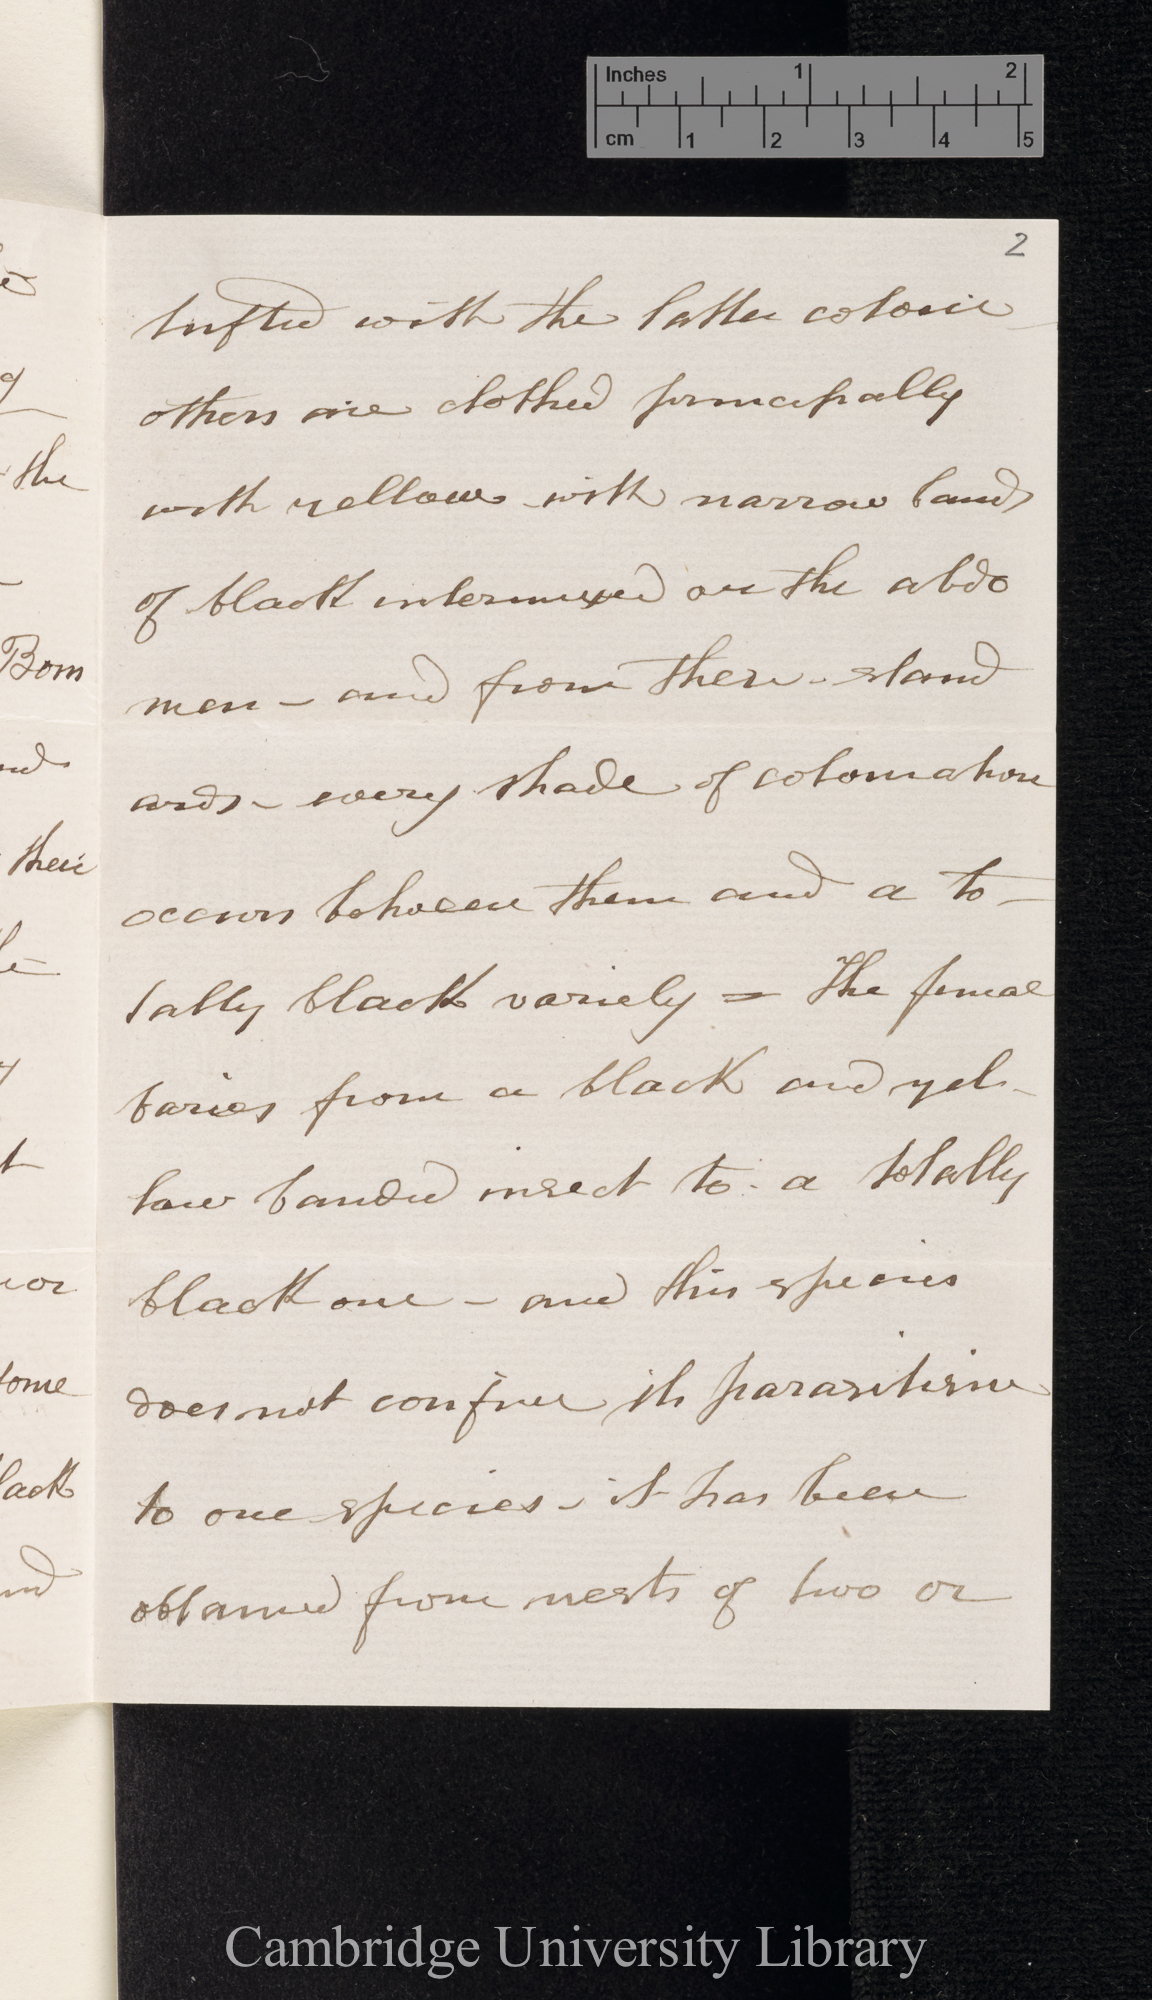 Inches 1 2
cm 1 2 3 4 5
2
tufted with the latter colour
others are clothed principally
with yellow with narrow bands
of black intermixed on the abdo
men – and from these – stand
ards – every shade of colouration
occurs between them and a to–
tally black variety = The female
varies from a black and yel–
low banded insect to a totally
black one – and this species
does not confine its parasitism
to one species – it has been
obtained from nests of two or
the
Bom
their
ome
lack
Cambridge University Library